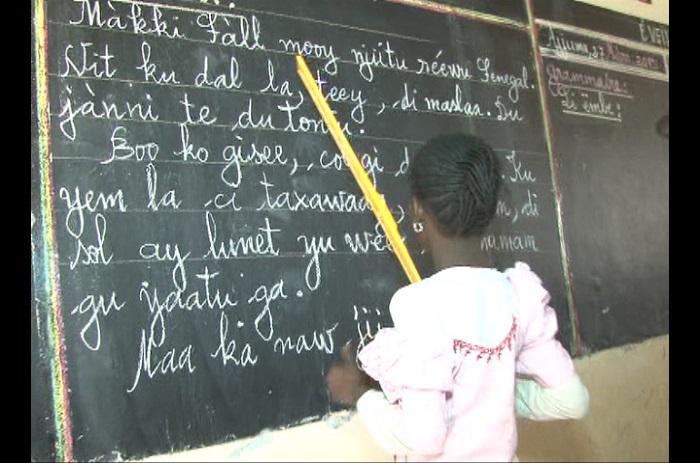 Màkki Fàll mooy njiitu réewu Senegal.
Nit ku dal la, teey, di maslaa. Du
jànni te du tontu.
Boo ko gisee, Ku
yem la ci di
sol ay lunet yu
gu yaatu ga.
Maa ka naw
Àjjuma, 27
grammaire:
Li ëmbe: